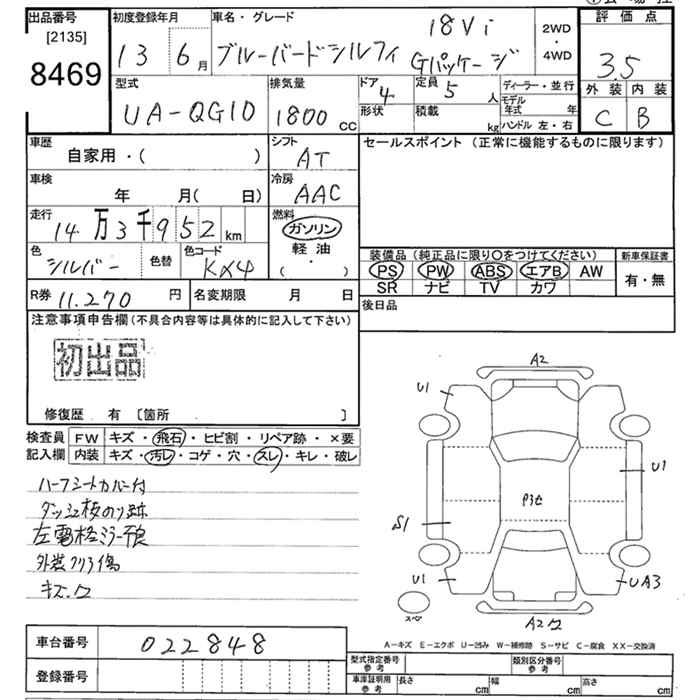 出品番号
[2135]
8469
初度登録年月
13 6月
車名・グレード
ブルーバードシルフィ
18Vi
Gパッケージ
2WD
・
4WD
評価点
3.5
外装 内装
C B
型式
UA-QG10
排気量
1800 cc
ドア 4
形状
定員 5 人
積載 kg
ディーラー・並行
モデル年式 年
ハンドル 左・右
車歴
自家用・( )
シフト
AT
セールスポイント (正常に機能するものに限ります)
車検
年 月( 日)
冷房
AAC
走行
14万3千952km
燃料
ガソリン
軽油
・
( )
色
シルバー
色替
色コード
KX4
装備品(純正品に限り○をつけてください)
PS PW ABS エアB AW
SR ナビ TV カワ
新車保証書
有・無
R券 11.270 円
名変期限 月 日
後日品
注意事項申告欄(不具合内容等は具体的に記入して下さい)
初出品
修復歴 有 [箇所 ]
検査員
記入欄
FW キズ・飛石・ヒビ割・リペア跡・×要
内装 キズ・汚レ・コゲ・穴・スレ・キレ・破レ
ハーフシートカバー付
ダッシュ板のり跡
左電格ミラー不良
外装クリア傷
キズ.ワ
A2
U1
U1
P3セ
S1
U1
UA3
スペア
A2ワ
車台番号 022848
登録番号
A-キズ E-エクボ U-凹み W-補修跡 S-サビ C-腐食 XX-交換済
型式指定番号
参考
類別区分番号
参考
車庫証明用
参考
長さ cm
幅 cm
高さ cm